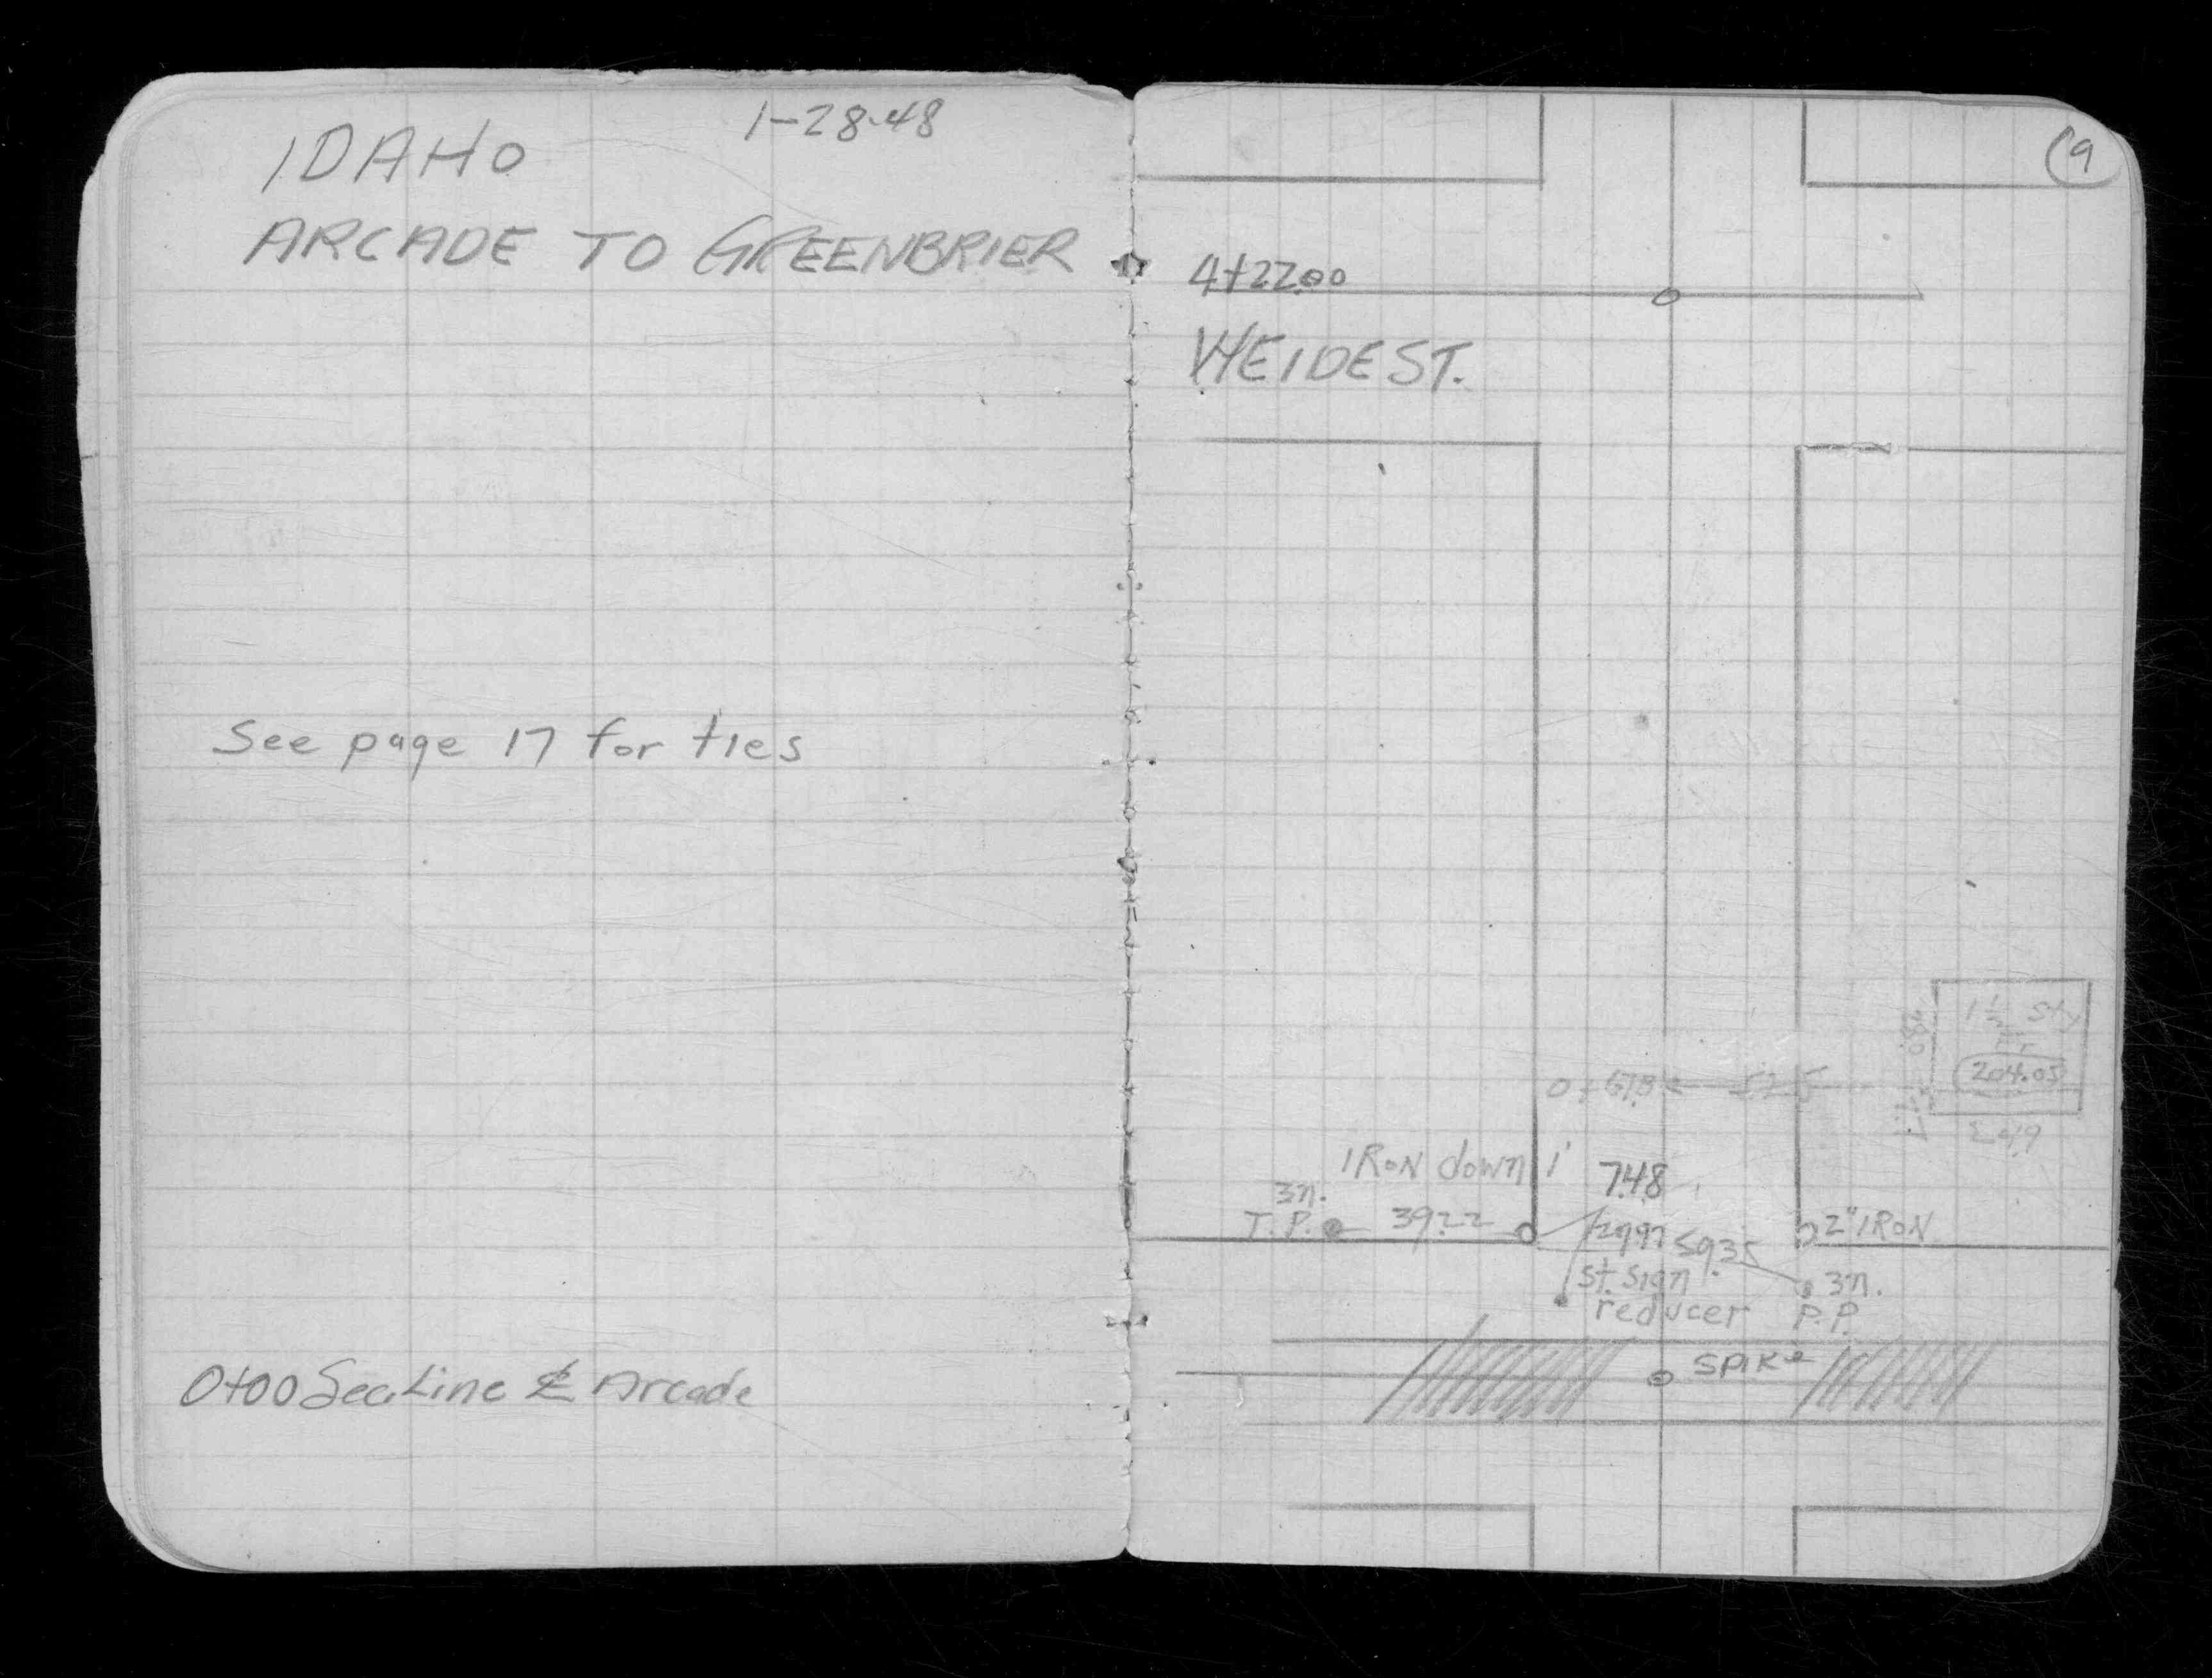 IDAHO 1-28-48
ARCADE TO GREENBRIER
See page 17 for ties
0+00 Sec. Line ℄ Arcade
9
4+22.00
WEIDE ST.
1½ Sty
Fr
204.05
0+57.8
IRON down 1'
7.48
3n.
T.P. 39.22
29.97 59.35
2" IRON
St. Sign
reducer
3n.
P.P.
SPIKE